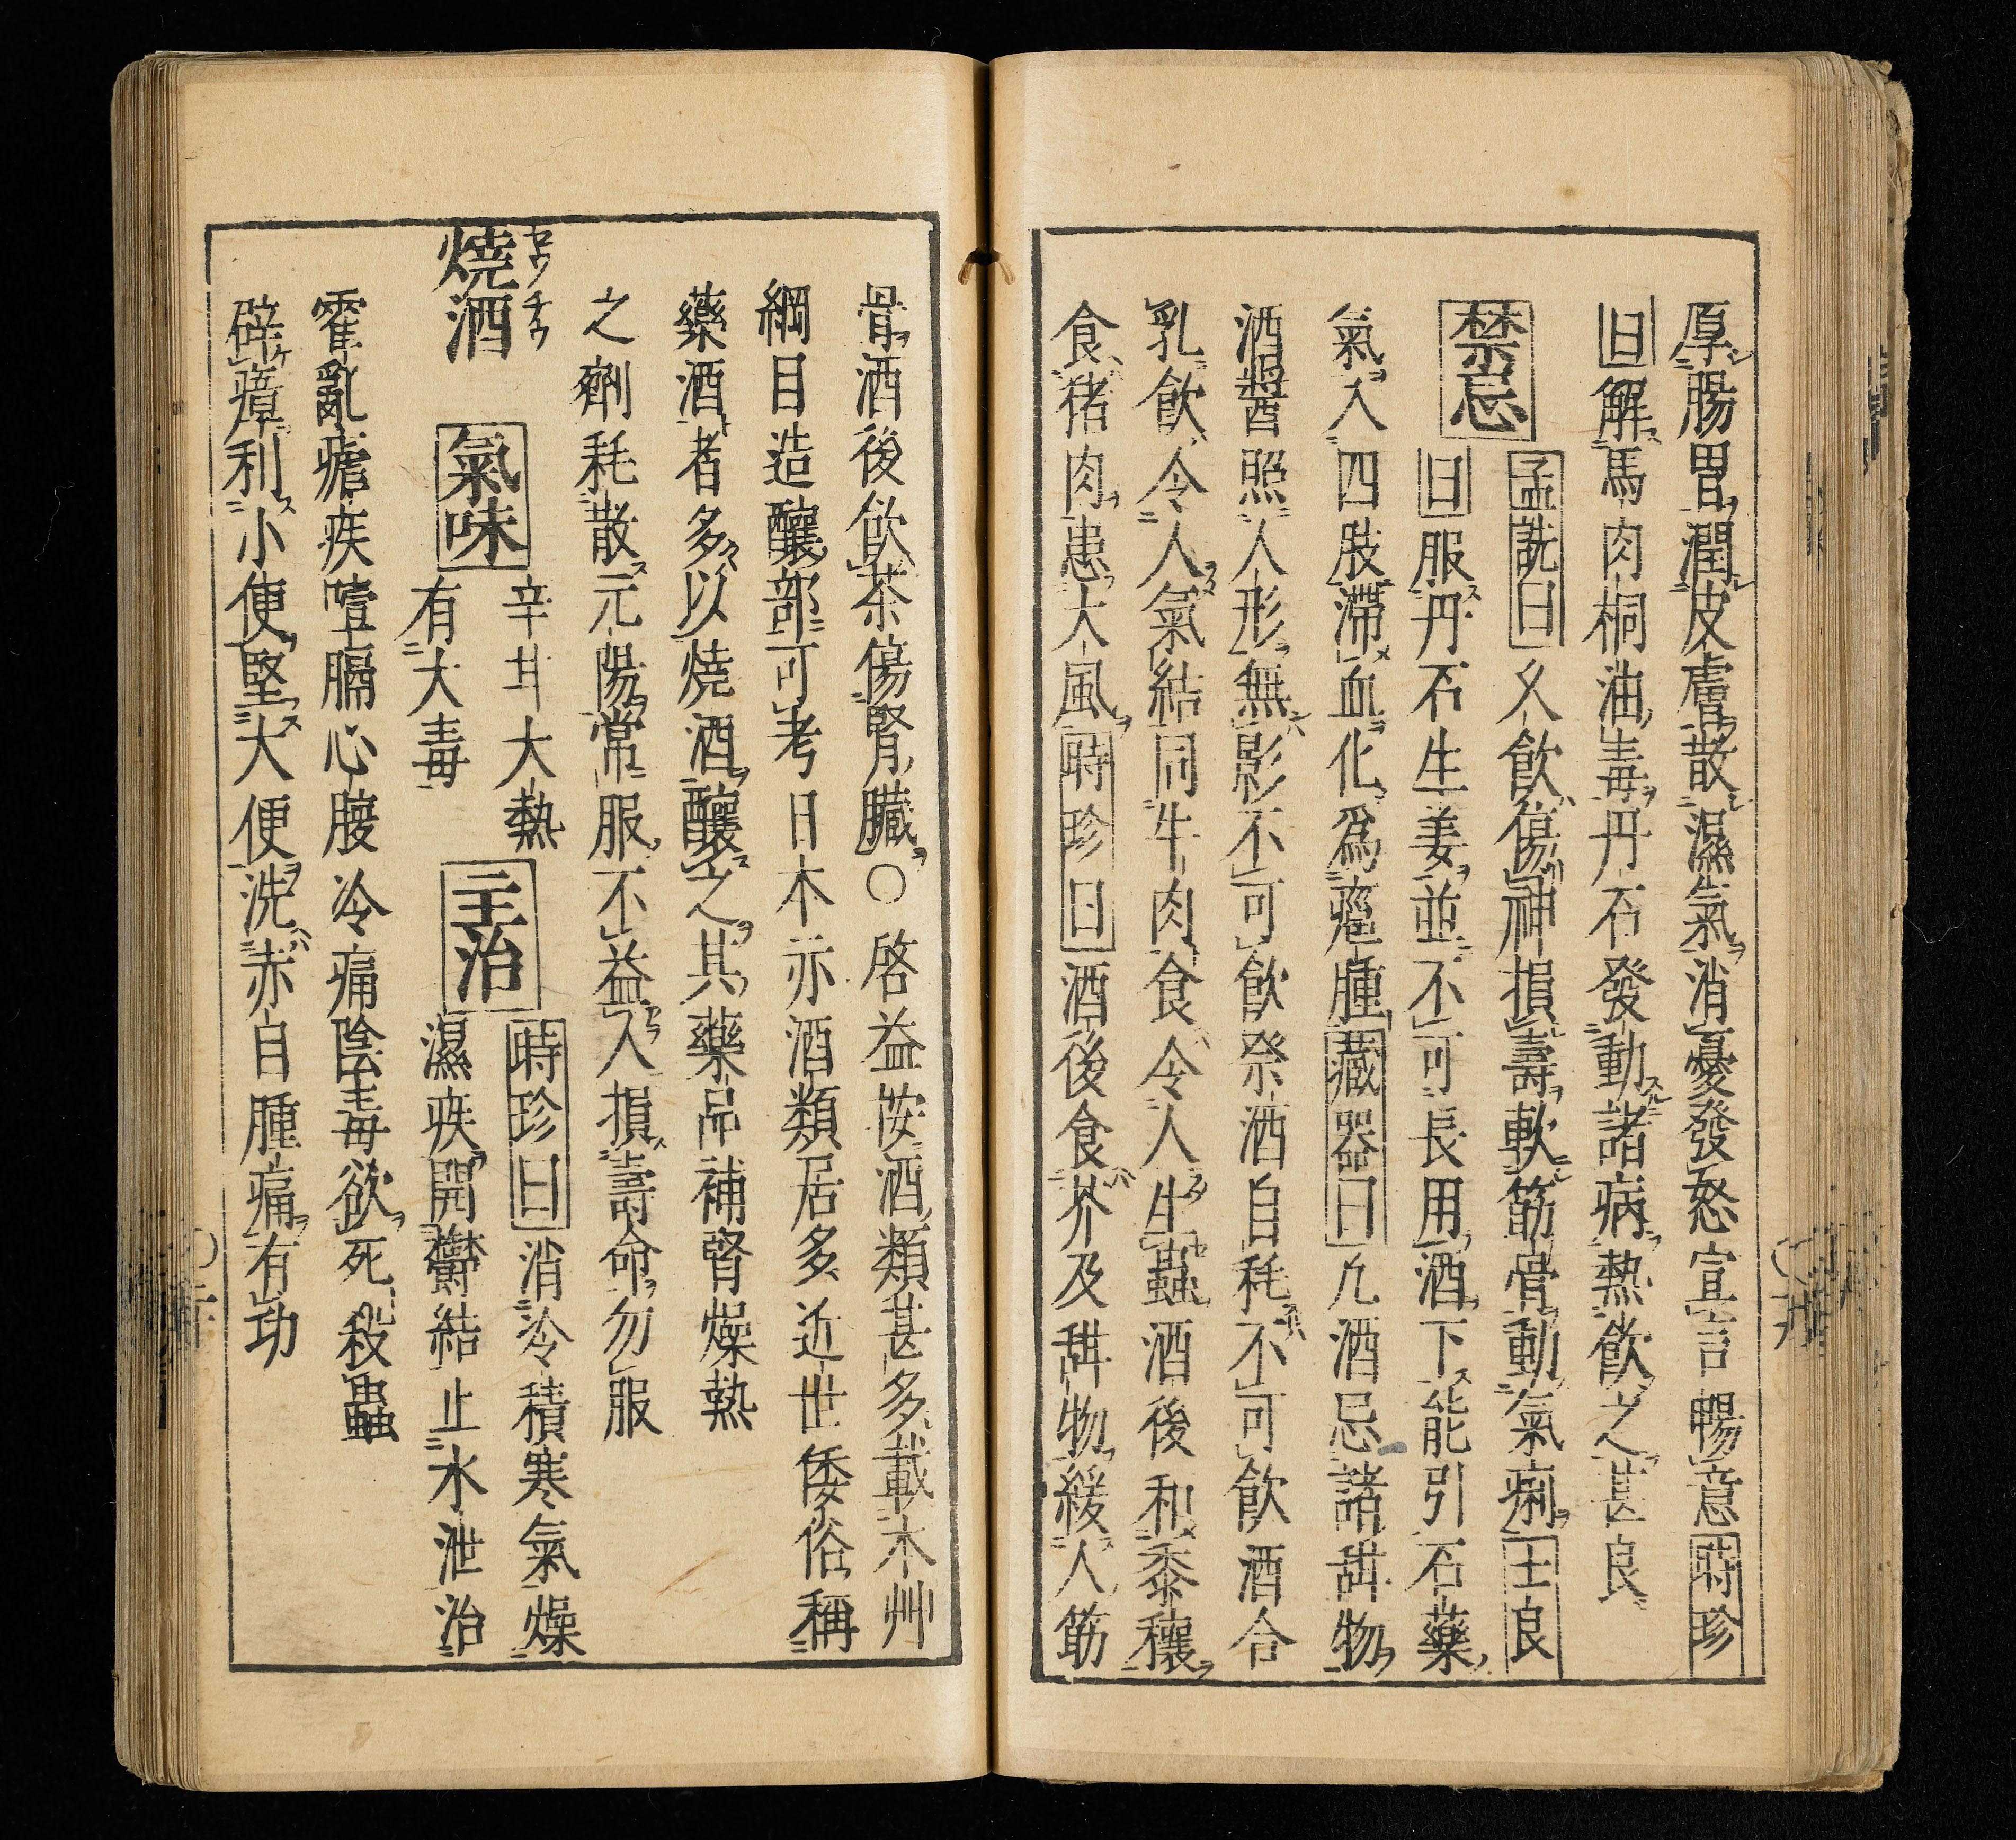 厚腸胃潤皮膚散濕氣消憂發怒宣言暢意時珍
曰解馬肉桐油毒丹石發動諸病熱飲之甚良
禁忌
孟詵曰久飲傷神損壽軟筋骨動氣痢士良
曰服丹石生姜並不可長用酒下能引石藥
氣入四肢滯血化爲癰腫藏器曰凡酒忌諸甜物
酒醬照人形無影不可飲祭酒自耗不可飲酒合
乳飲令人氣結同牛肉食令人生蟲酒後和黍穰
食猪肉患大風時珍曰酒後食芥及辣物緩人筋
骨酒後飲茶傷腎臟○啓益按酒類甚多載本艸
綱目造釀部可考日本亦酒類居多近世倭俗稱
藥酒者多以燒酒釀之其藥品補腎燥熱
之劑耗散元陽常服不益人損壽命勿服
燒酒
セウチウ
氣味
辛甘大熱
有大毒
主治
時珍曰消冷積寒氣燥
濕痰開鬱結止水泄治
霍亂瘧疾噎膈心腹冷痛陰毒欲死殺蟲
辟瘴利小便堅大便洗赤目腫痛有功